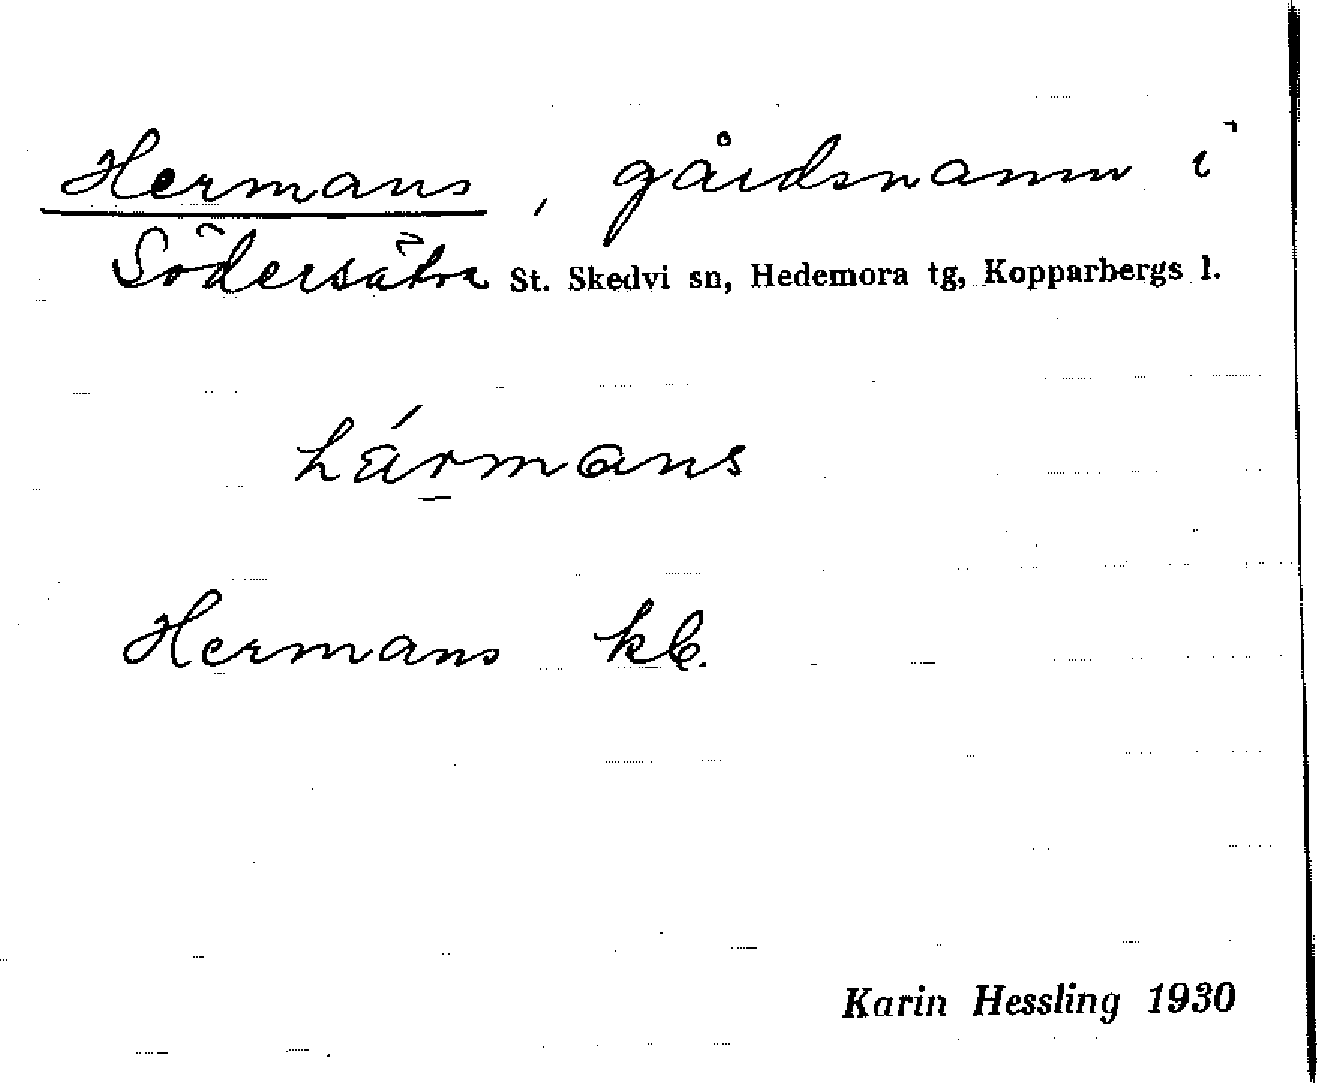 Hermans, gårdsnamn i
Södersätra St. Skedvi sn, Hedemora tg, Kopparbergs l.
hármans
Hermans kb.
Karin Hessling 1930